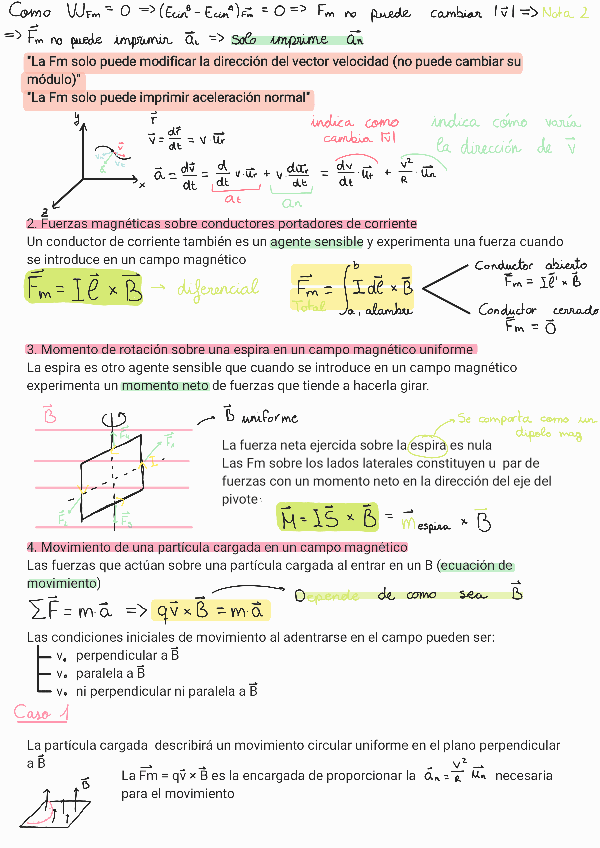 Como W_Fm = 0 => (Ecin^B - Ecin^A)_Fm = 0 => Fm no puede cambiar |v⃗| => Nota 2
=> F⃗m no puede imprimir a⃗t => solo imprime a⃗n
"La Fm solo puede modificar la dirección del vector velocidad (no puede cambiar su
módulo)"
"La Fm solo puede imprimir aceleración normal"
indica como
cambia |v⃗|
indica cómo varía
la dirección de v⃗
y
x
z
v⃗ = dr⃗/dt = v u⃗t
a⃗ = dv⃗/dt = d/dt v·u⃗t + v du⃗t/dt = dv/dt · u⃗t + v²/R · u⃗n
at
an
2. Fuerzas magnéticas sobre conductores portadores de corriente
Un conductor de corriente también es un agente sensible y experimenta una fuerza cuando
se introduce en un campo magnético
F⃗m = I ℓ⃗ × B⃗ → diferencial
F⃗m = ∫ I dℓ⃗ × B⃗
Total
b
a, alambre
Conductor abierto
F⃗m = Iℓ⃗' × B⃗
Conductor cerrado
F⃗m = 0⃗
3. Momento de rotación sobre una espira en un campo magnético uniforme
La espira es otro agente sensible que cuando se introduce en un campo magnético
experimenta un momento neto de fuerzas que tiende a hacerla girar.
B⃗
B⃗ uniforme
Se comporta como un
dipolo mag
La fuerza neta ejercida sobre la espira es nula
Las Fm sobre los lados laterales constituyen u par de
fuerzas con un momento neto en la dirección del eje del
pivote
M⃗ = I S⃗ × B⃗ = m⃗ espira × B⃗
4. Movimiento de una partícula cargada en un campo magnético
Las fuerzas que actúan sobre una partícula cargada al entrar en un B (ecuación de
movimiento)
ΣF⃗ = m·a⃗ => qv⃗ × B⃗ = m·a⃗
Depende de como sea B⃗
Las condiciones iniciales de movimiento al adentrarse en el campo pueden ser:
v₀ perpendicular a B⃗
v₀ paralela a B⃗
v₀ ni perpendicular ni paralela a B⃗
Caso 1
La partícula cargada describirá un movimiento circular uniforme en el plano perpendicular
a B⃗
B⃗
La F⃗m = qv⃗ × B⃗ es la encargada de proporcionar la a⃗n = v²/R u⃗n necesaria
para el movimiento